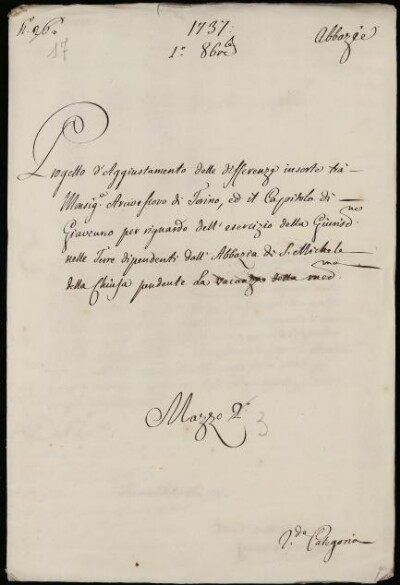 N.° 26.
17
1737:
1.° 8bre
Abbazie
Progetto d'Aggiustamento delle differenze insorte trà
Monsig.r Arcivescovo di Torino, ed il Capitolo di
Giaveno per riguardo dell'esercizio della Giurisd.ne
nelle Terre dipendenti dall'Abbazia di S. Michele
della Chiusa pendente la vacanza della med.ma
Mazzo 2.°
3
2.da Categoria